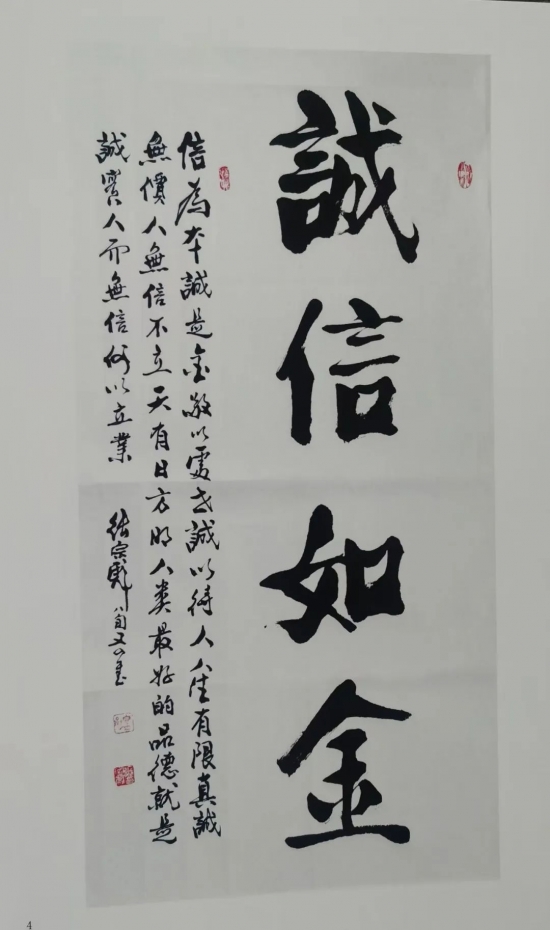 誠信如金
信為本誠是金敬以處世誠以待人人生有限真誠
無價人無信不立天有日方明人类最好的品德就是
誠實人而無信何以立業
宗 八旬又
4